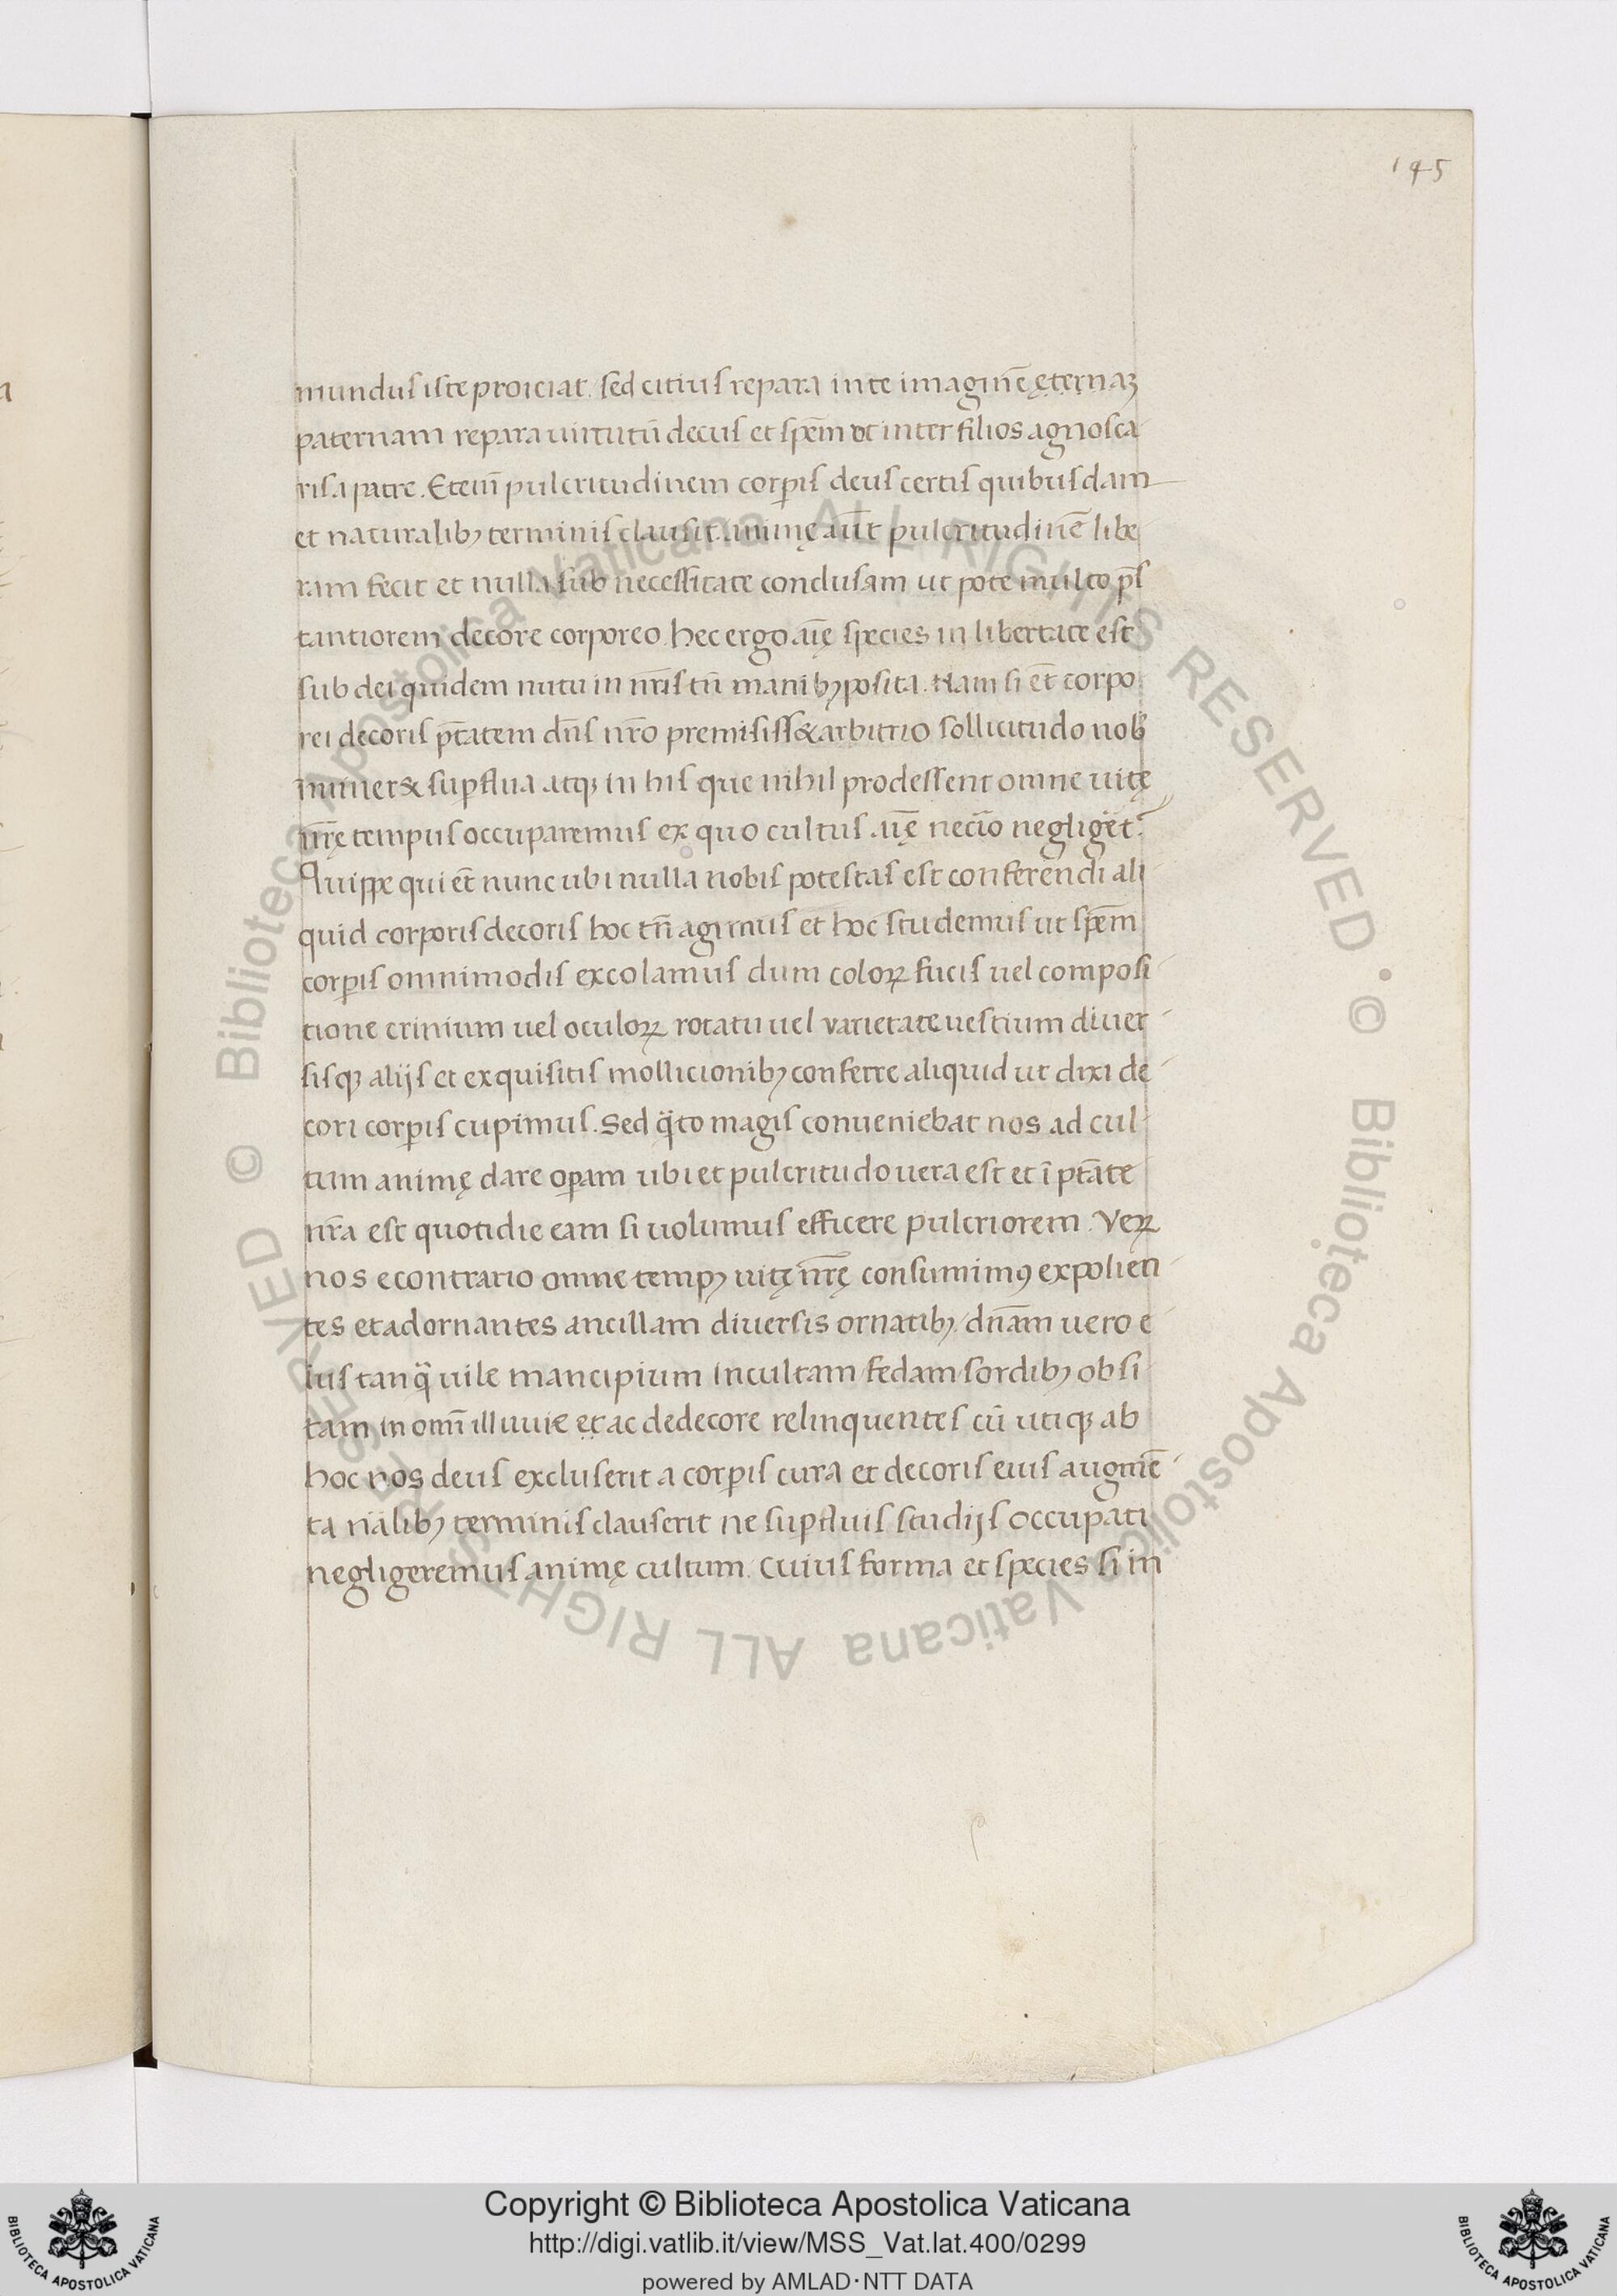 145
mundus iste proiciat. sed citius repara in te imaginē ęternaȝ
paternam repara uirtutū decus et spēm ut inter filios agnosca
ris a patre. Etenī pulcritudinem corꝑis deus certis quibusdam
et naturalibȝ terminis clausit. animę aūt pulcritudinē libe
ram fecit et nulla sub necessitate conclusam ut pote multo p̄s
tantiorem decore corporeo. hec ergo aīę species in libertate est
sub dei quidem nutu in nr̄is tn̄ manibȝ posita. Nam si et̄ corpo
rei decoris p̄tatem dn̄s nr̄o premisiss& arbitrio sollicitudo nob̄
īminer& suꝑflua atqȝ in his que nihil prodessent omne uitę
nr̄ę tempus occuparemus ex quo cultus aīę necīo negliget̄.
Quippe qui et̄ nunc ubi nulla nobis potestas est conferendi ali
quid corporis decoris hoc tn̄ agimus et hoc studemus ut spēm
corꝑis omnimodis excolamus dum coloꝝ fucis uel composi
tione crinium uel oculoꝝ rotatu uel varietate uestium diuer
sisqȝ alijs et exquisitis mollicionibȝ conferre aliquid ut dixi de
cori corꝑis cupimus. Sed q̈to magis conueniebat nos ad cul
tum animę dare oꝑam ubi et pulcritudo uera est et ī ptāte
nr̄a est quotidie eam si uolumus efficere pulcriorem. Veꝝ
nos econtrario omne tempȝ uitę nr̄ę consumimꝯ expolien
tes et adornantes ancillam diuersis ornatibȝ / dn̄am uero e
ius tanq̈ uile mancipium incultam / fedam / sordibȝ obsi
tam in omī illuuie et ac dedecore relinquentes cū utiqȝ ab
hoc nos deus excluserit a corꝑis cura et decoris eius augmē
ta nālibȝ terminis clauserit ne suꝑfluis studijs occupati
negligeremus animę cultum. Cuius forma et species si in
Biblioteca Apostolica Vaticana ALL RIGHTS RESERVED • © Biblioteca Apostolica Vaticana ALL RIGHTS RESERVED ©
Copyright © Biblioteca Apostolica Vaticana
http://digi.vatlib.it/view/MSS_Vat.lat.400/0299
powered by AMLAD·NTT DATA
BIBLIOTECA APOSTOLICA VATICANA
BIBLIOTECA APOSTOLICA VATICANA